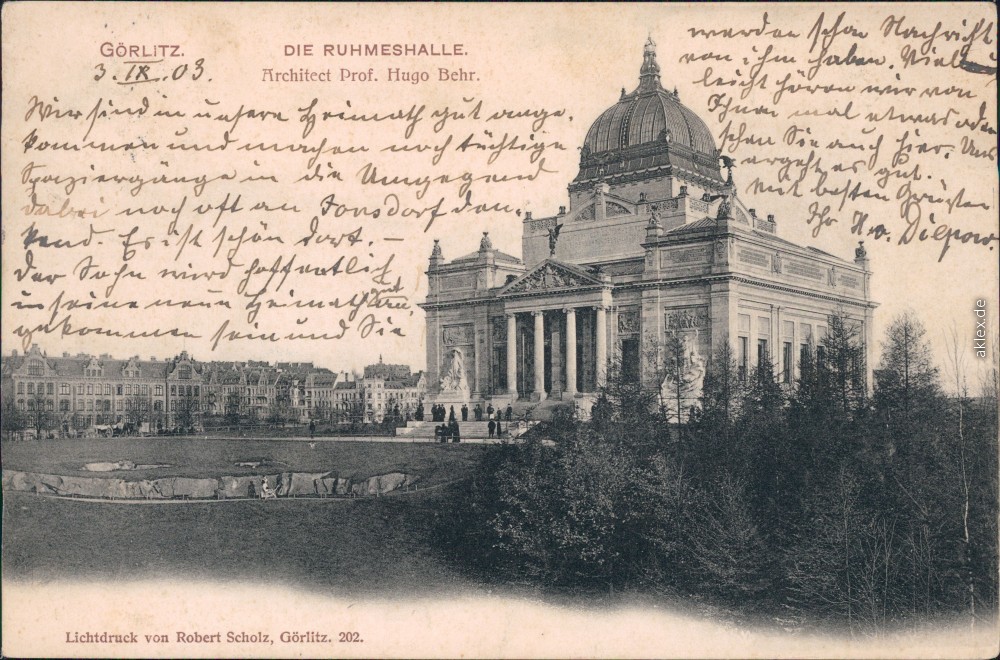 GÖRLITZ.
DIE RUHMESHALLE.
3. IX. 03.
Architect Prof. Hugo Behr.
Wir sind in unsere Heimath gut ange-
kommen und machen noch tüchtige
Spaziergänge in die Umgegend
dabei noch oft an Jonsdorf den-
kend. Es ist schön dort. –
Der Sohn wird hoffentlich gut
in seine neue Heimath an-
gekommen sein und Sie
werden schon Nachricht
von ihm haben. Viel
leicht hören wir von
Ihnen mal etwas oder
schen Sie auch hier. Uns
ergeht es gut.
Mit besten Grüßen
Ihr H. v. Dilpow.
aklex.de
Lichtdruck von Robert Scholz, Görlitz. 202.